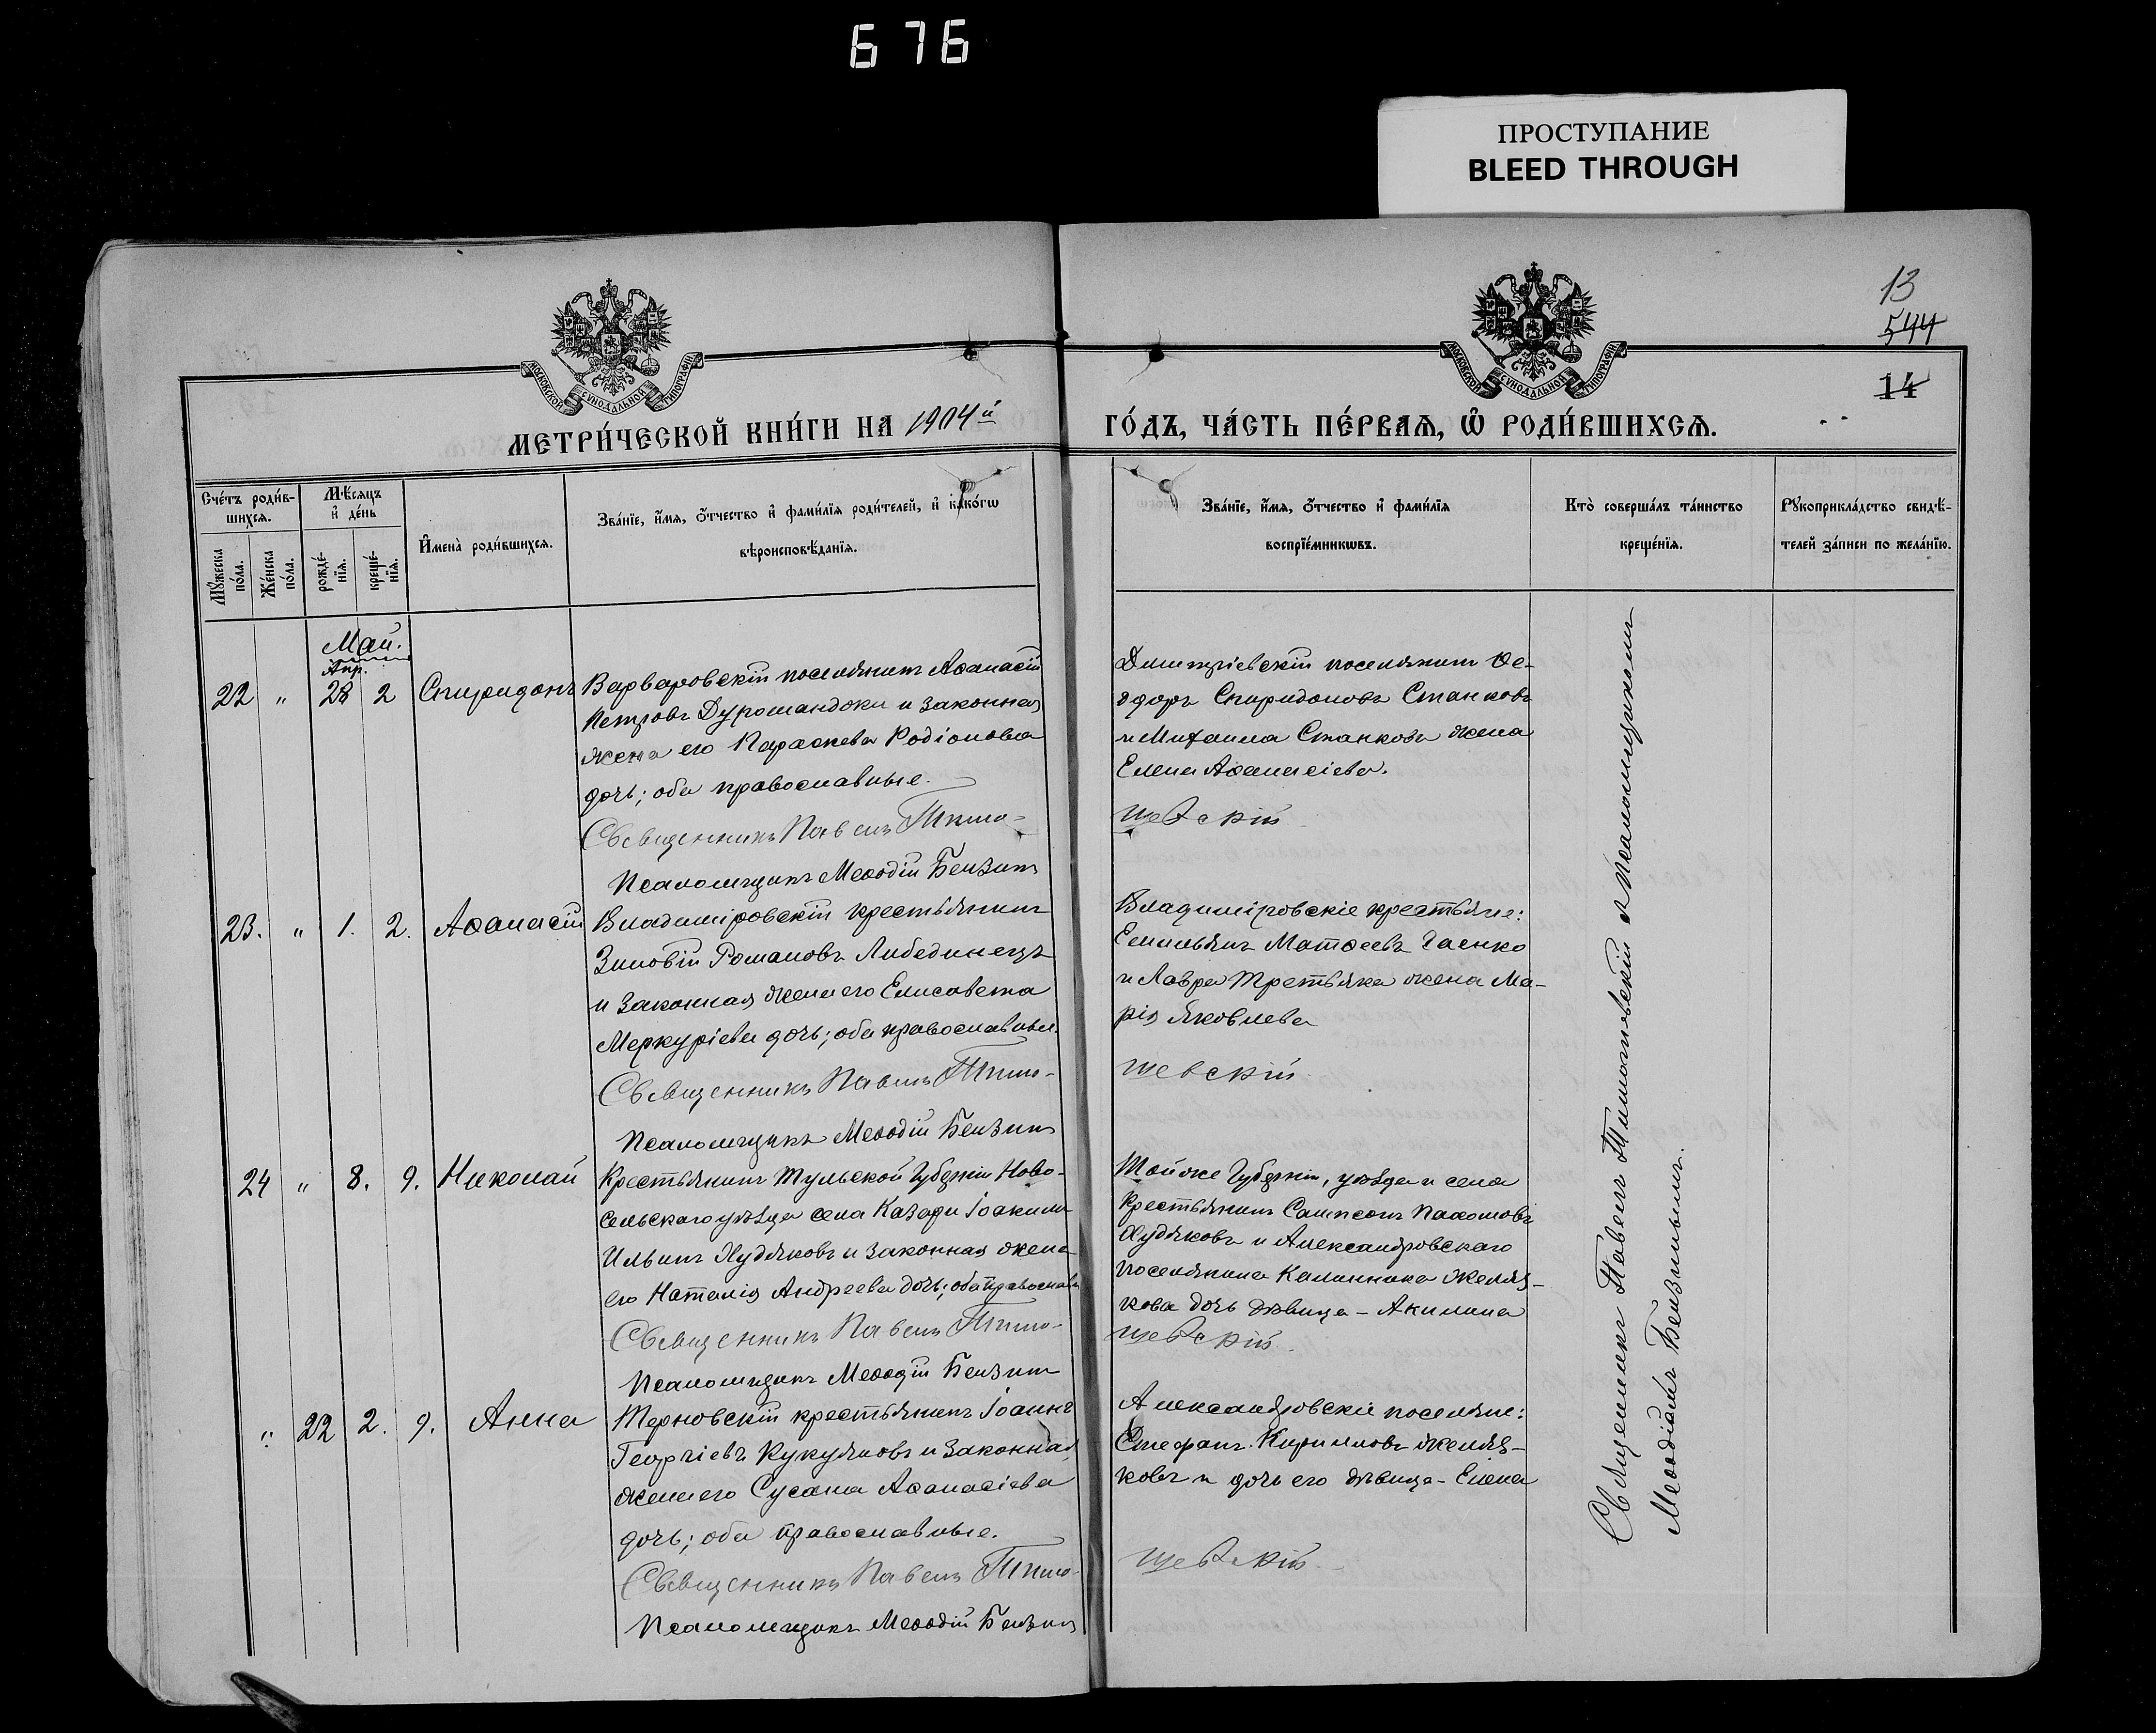 676
ПРОСТУПАНИЕ
BLEED THROUGH
13
544
14
МОСКОВСКОЙ СѴНОДАЛЬНОЙ ТИПОГРАФІИ
МОСКОВСКОЙ СѴНОДАЛЬНОЙ ТИПОГРАФІИ
МЕТРИ́ЧЕСКОЙ КНИ́ГИ НА 1904й
ГО́ДЪ, ЧА́СТЬ ПЕ́РВАѦ, Ѡ҆ РОДИ́ВШИХСѦ.
Сче́тъ роди́в-
шихсѧ.
Мꙋ́жеска по́ла.
Же́нска по́ла.
Мѣ́сѧцъ
и҆ де́нь
рожде́-
нїѧ.
креще́-
нїѧ.
И҆мена̀ роди́вшихсѧ.
Зва́нїе, и҆́мѧ, ѻ҆́тчество и҆ фами́лїѧ роди́телей, и҆ како́гѡ
вѣроисповѣ́данїѧ.
Зва́нїе, и҆́мѧ, ѻ҆́тчество и҆ фами́лїѧ
воспрїе́мникѡвъ.
Кто̀ соверша́лъ та́инство
креще́нїѧ.
Рꙋкоприкла́дство свидѣ́-
телей за́писи по жела́нїю.
Май.
Апр.
22 " 28 2 Спиридонъ
Варваровскій поселянинъ Аѳанасій
Петровъ Дуромандоки и законная
жена его Параскева Родіонова
дочь; оба православные.
Священникъ Павелъ Тимо-
Псаломщикъ Меѳодій Бензинъ
Димитріевскій поселянинъ Ѳе-
одоръ Спиридоновъ Станковъ
и Михаила Станкова жена
Елена Аѳанасіева.
шевскій
23. " 1. 2. Аѳанасій
Владиміровскій крестьянинъ
Зиновій Романовъ Либединецъ
и законная жена его Елисавета
Меркуріева дочь; оба православные.
Священникъ Павелъ Тимо-
Псаломщикъ Меѳодій Бензинъ
Владиміровскіе крестьяне:
Емильянъ Матѳеевъ Гаенко
и Лавра Третьяка жена Ма-
рія Яковлева
шевскій
24 " 8. 9. Николай
Крестьянинъ Тульской Губерніи Ново-
сельскаго уѣзда села Казари Іоакимъ
Ильинъ Худяковъ и законная жена
его Наталія Андреева дочь; оба православн
Священникъ Павелъ Тимо-
Псаломщикъ Меѳодій Бензинъ
Той же Губерніи, уѣзда и села
крестьянинъ Сампсонъ Пахомовъ
Худяковъ и Александровскаго
поселянина Калинника Желяз-
кова дочь дѣвица - Акилина
шевскій.
" 22 2. 9. Анна
Терновскій крестьянинъ Іоаннъ
Георгіевъ Кукуляновъ и законная
жена его Сусана Аѳанасіева
дочь; оба православные.
Священникъ Павелъ Тимо-
Псаломщикъ Меѳодій Бензинъ
Александровскіе поселяне:
Стефанъ Кирилловъ Желяз-
ковъ и дочь его дѣвица - Елена
шевскій
Священникъ Павелъ Тимошевскій и Псаломщикомъ
Меѳодіемъ Бензинымъ.